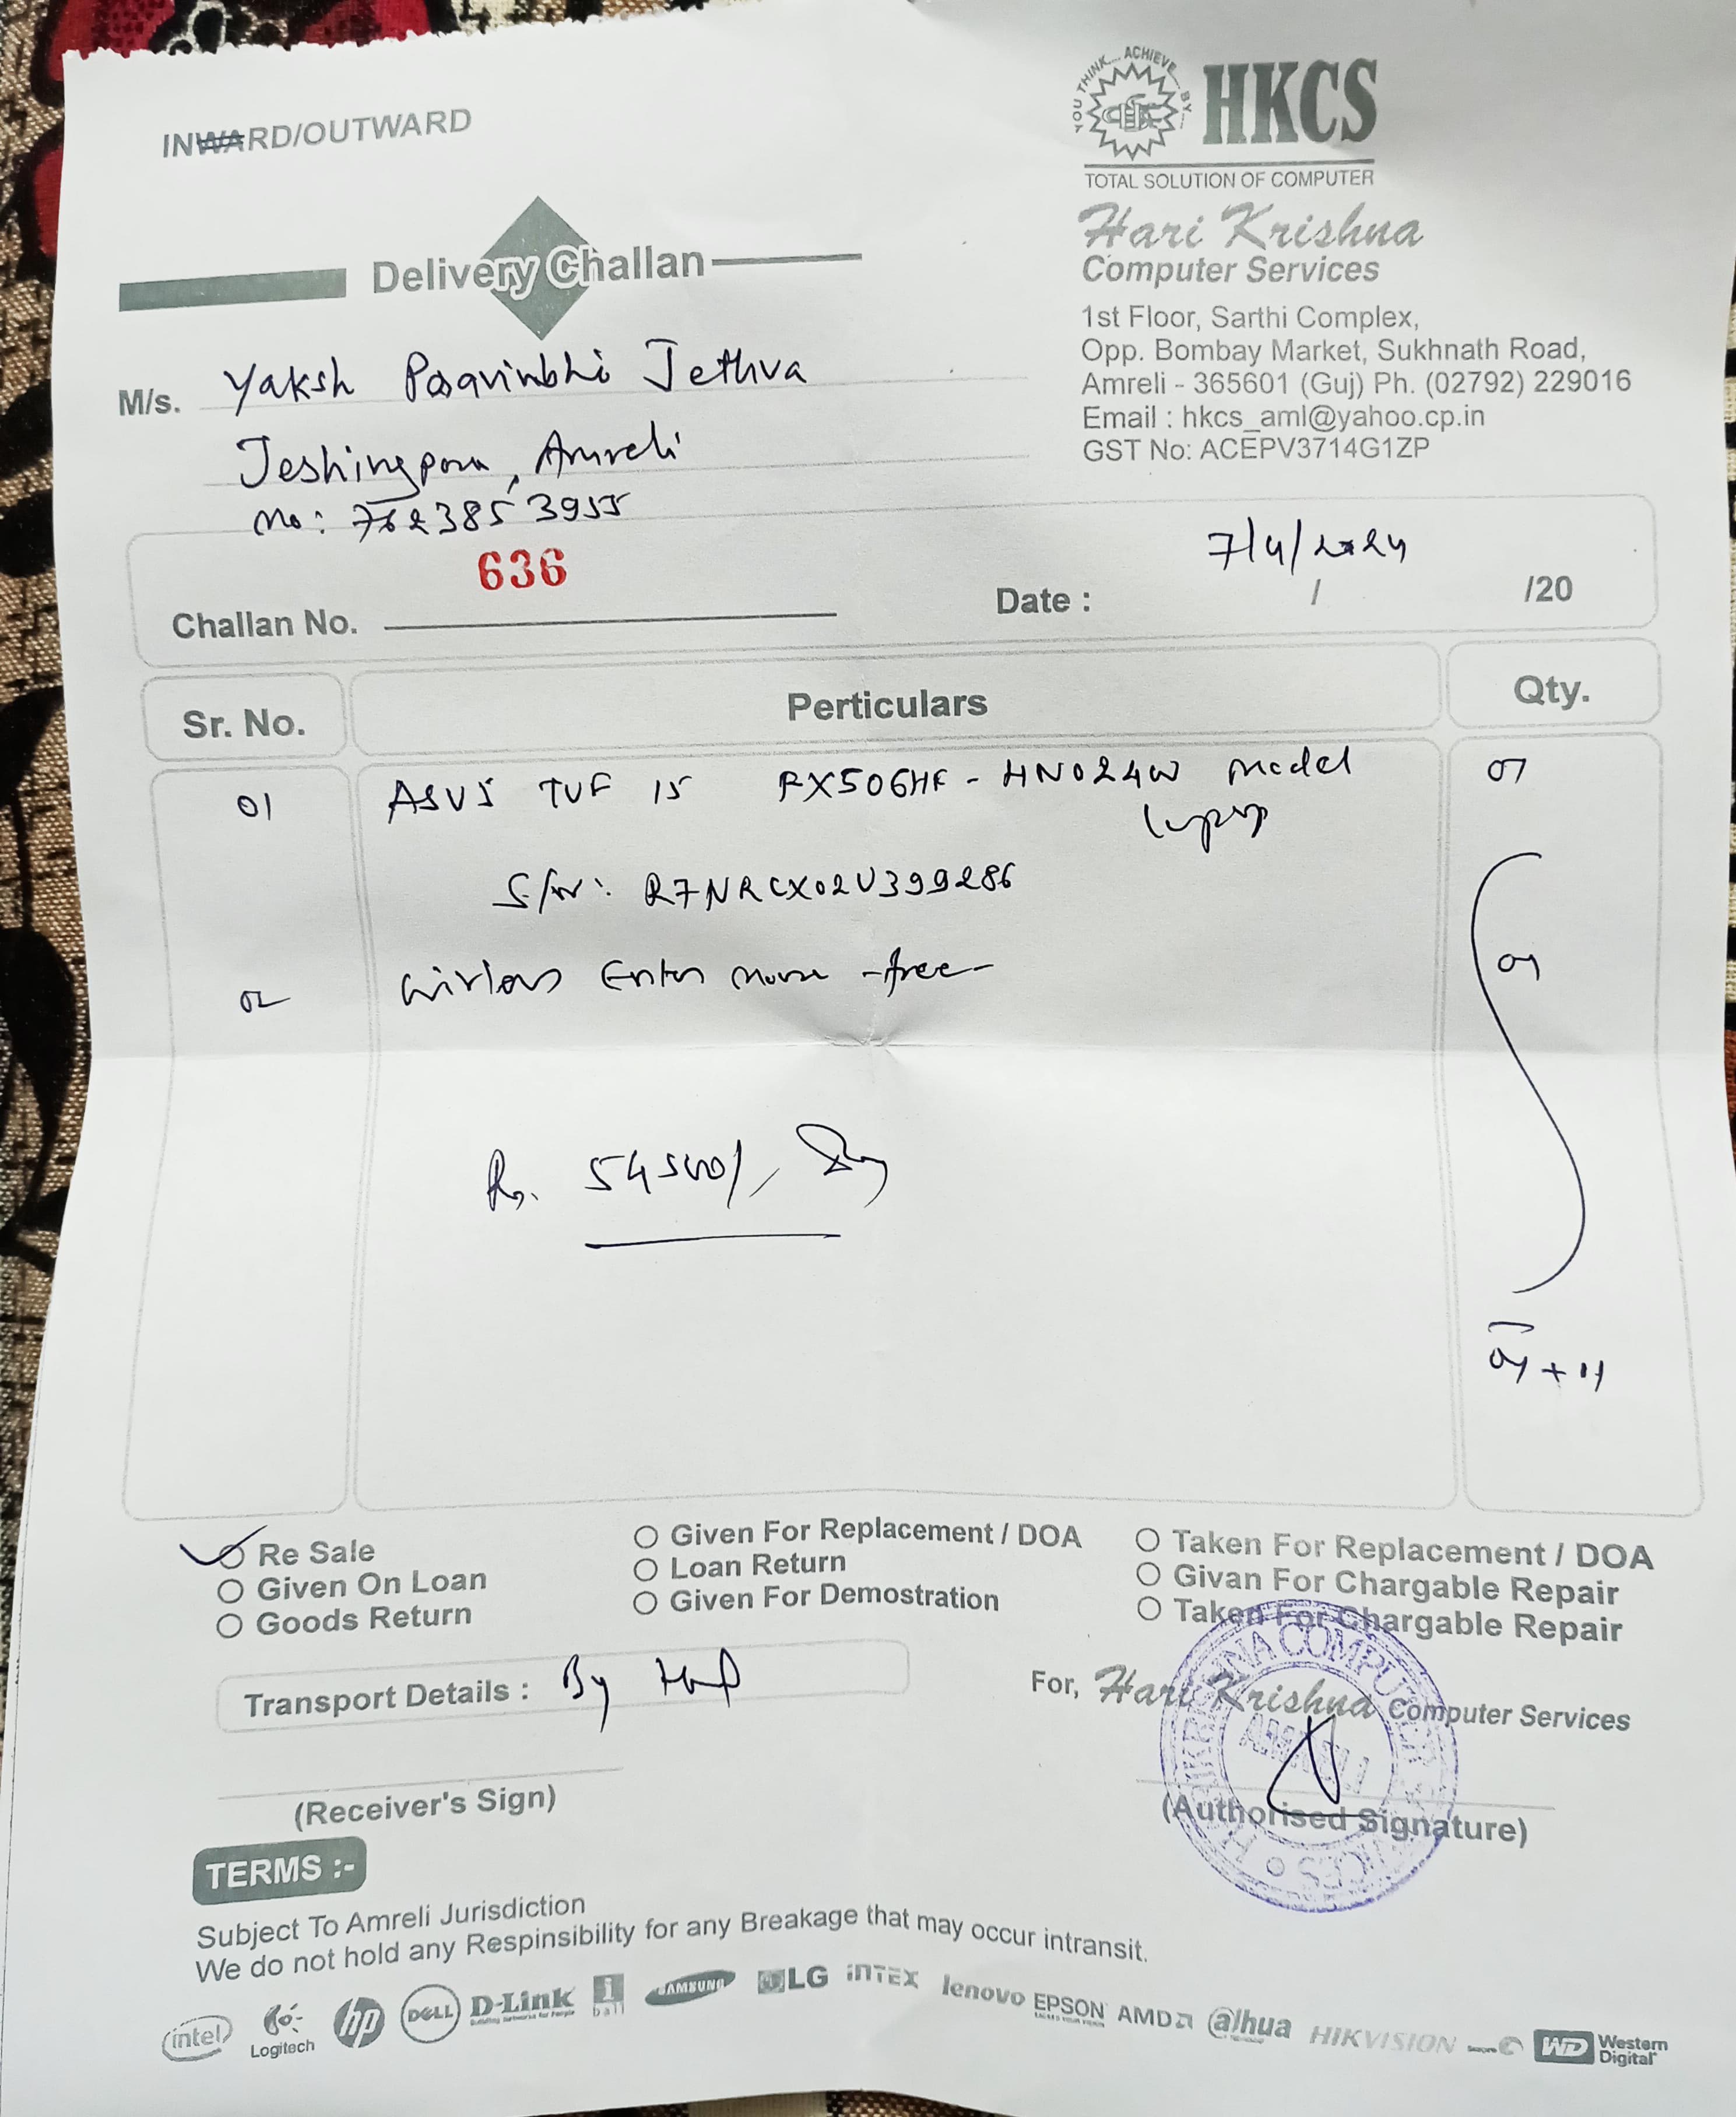 INWARD/OUTWARD
YOU THINK... ACHIEVE BY....
HKCS
TOTAL SOLUTION OF COMPUTER
Hari Krishna
Computer Services
1st Floor, Sarthi Complex,
Opp. Bombay Market, Sukhnath Road,
Amreli - 365601 (Guj) Ph. (02792) 229016
Email : hkcs_aml@yahoo.cp.in
GST No: ACEPV3714G1ZP
Delivery Challan
M/s. Yaksh Pravinbhi Jethva
Jeshingpra, Amreli
Mo: 7623853955
636
Challan No.
7/4/2024
Date : / /20
Sr. No. Perticulars Qty.
01 ASUS TUF 15 FX506HF - HN024W Model 01
laptop
S/N: R7NRCX02V399286
02 Wirless Enter Mouse -free- 01
Rs. 54500/-
01 + 11
Re Sale
Given On Loan
Goods Return
Given For Replacement / DOA
Loan Return
Given For Demostration
Taken For Replacement / DOA
Givan For Chargable Repair
Taken For Chargable Repair
Transport Details : By Hand
For, Hari Krishna Computer Services
HARIKRISHNA COMPUTER SERVICES
AMRELI
(Receiver's Sign)
(Authorised Signature)
TERMS :-
Subject To Amreli Jurisdiction
We do not hold any Respinsibility for any Breakage that may occur intransit.
intel Logitech hp DELL D-Link iball SAMSUNG LG INTEX lenovo EPSON AMD alhua HIKVISION WD Western Digital